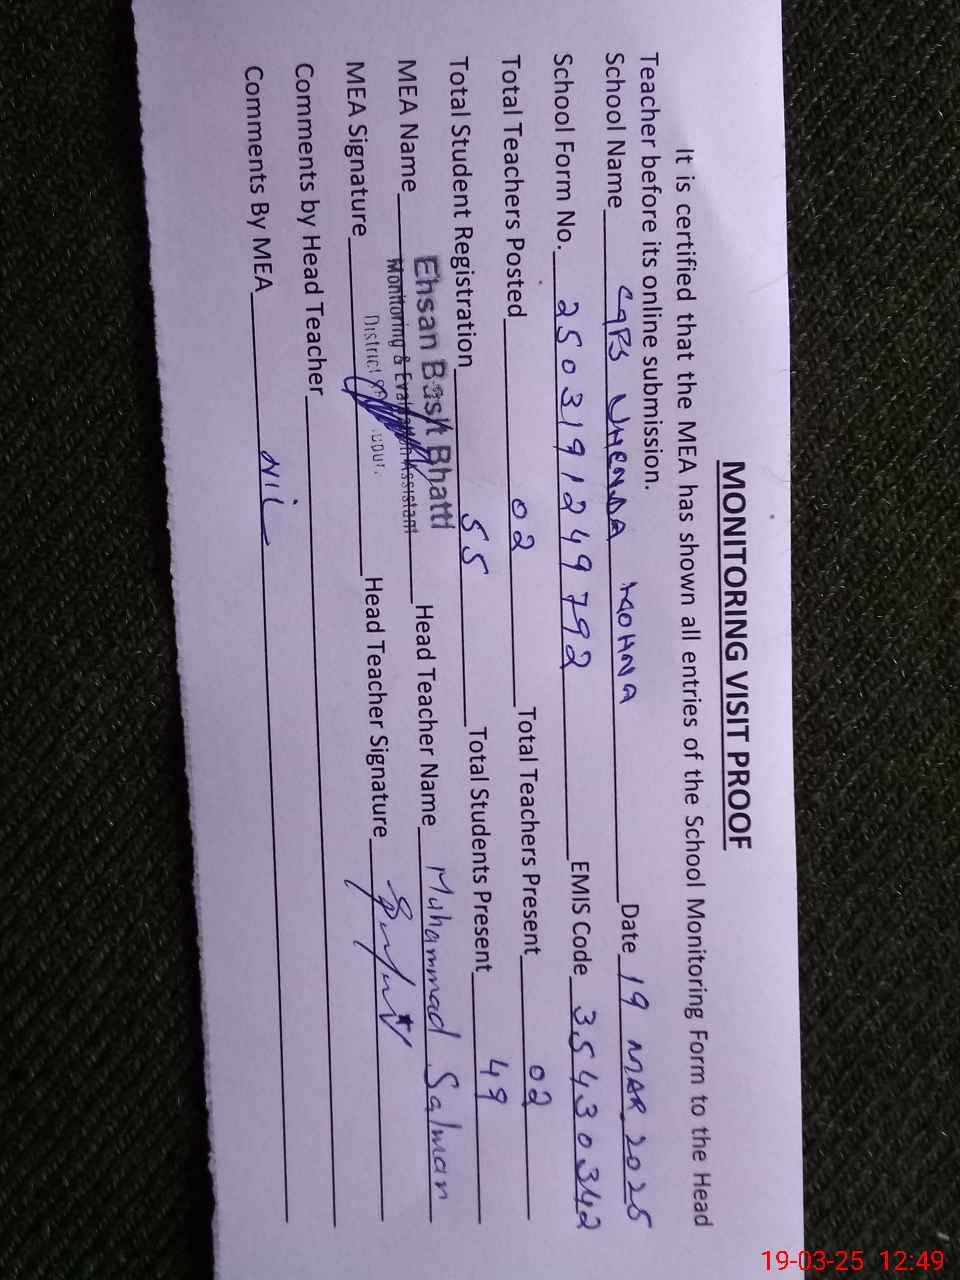 MONITORING VISIT PROOF
It is certified that the MEA has shown all entries of the School Monitoring Form to the Head
Teacher before its online submission.
School Name GPS MOHNA Date 19 MAR 2025
School Form No. 2503191249792 EMIS Code 35430342
Total Teachers Posted 02 Total Teachers Present 02
Total Student Registration 55 Total Students Present 49
MEA Name Ehsan Basit Bhatti Head Teacher Name Muhammad Salman
Monitoring & Evaluation Assistant
District
MEA Signature Head Teacher Signature
Comments by Head Teacher
Comments By MEA NIL
19-03-25 12:49